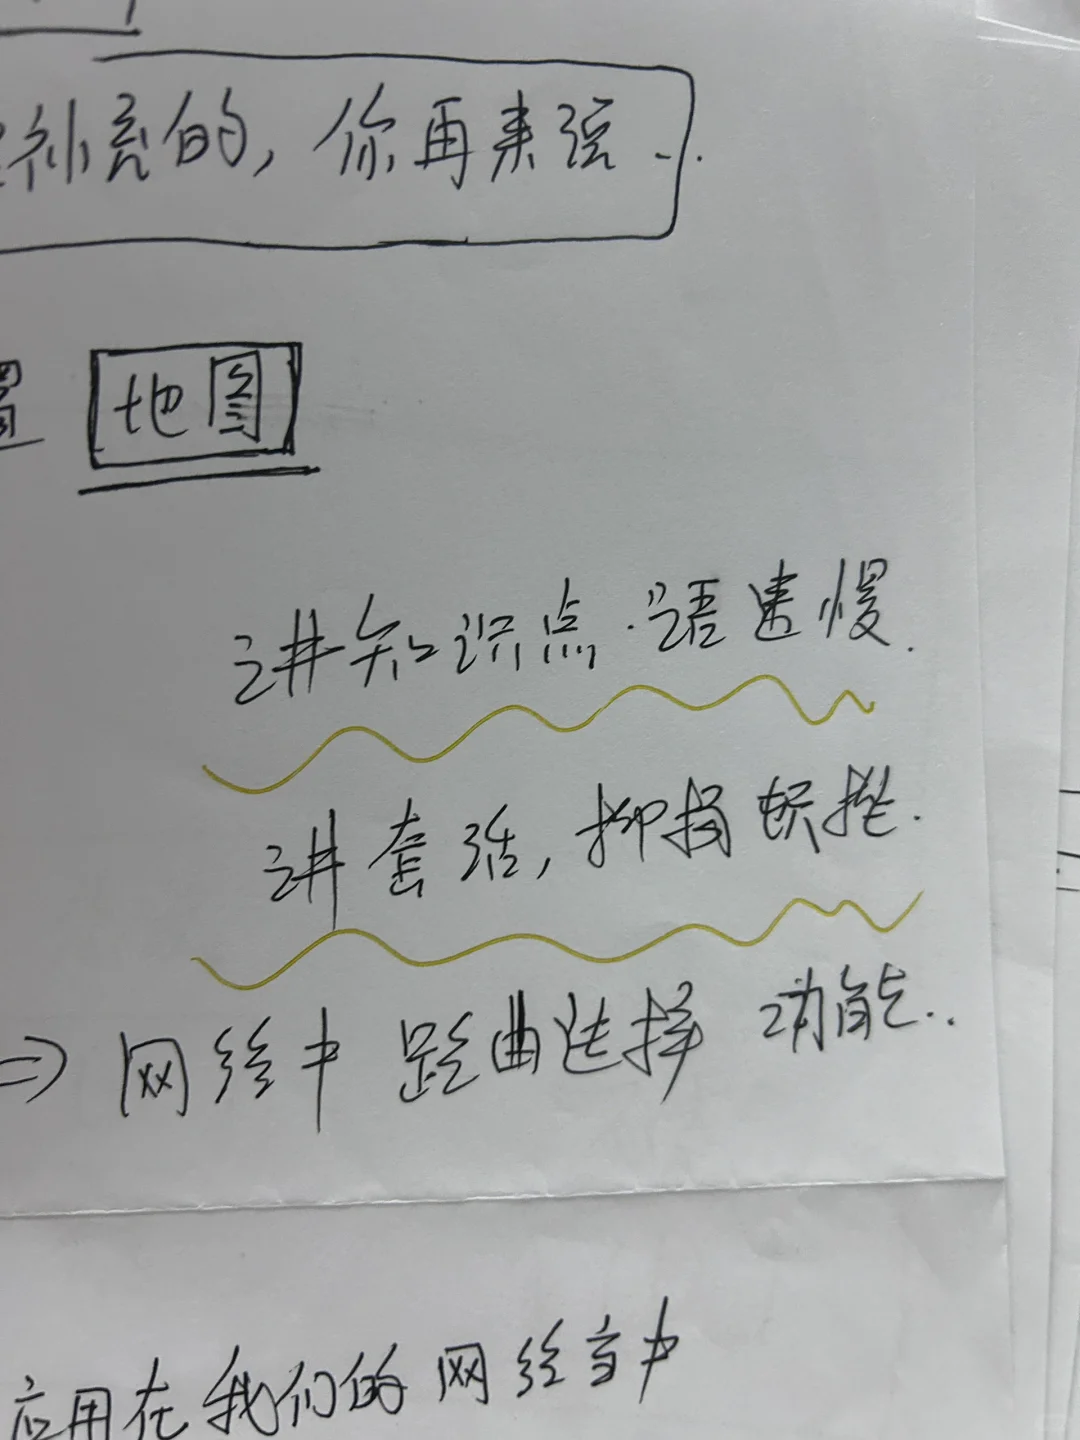 补充的，你再来强...
置 地图
讲知识点.语速慢.
讲套话，抑扬顿挫.
=> 网络中 路由选择 功能..
应用在我们的网络当中